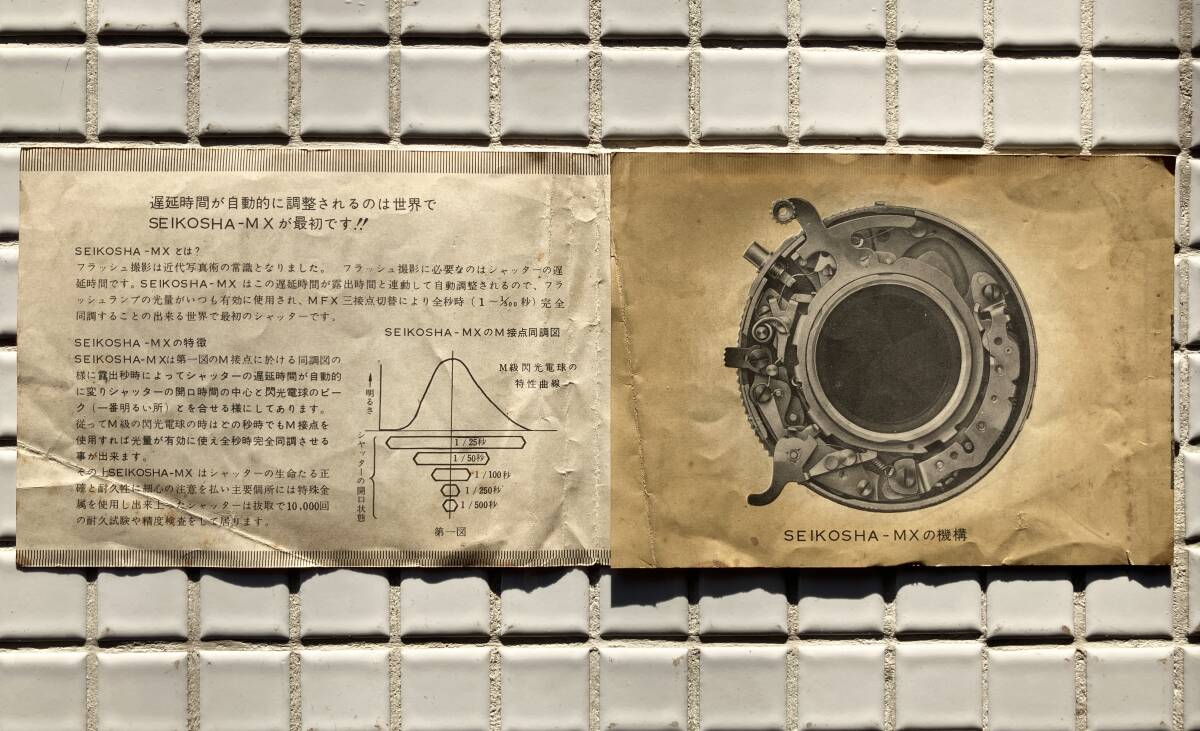 遅延時間が自動的に調整されるのは世界で
SEIKOSHA-MXが最初です!!
SEIKOSHA-MXとは?
フラッシュ撮影は近代写真術の常識となりました。 フラッシュ撮影に必要なのはシャッターの遅
延時間です。SEIKOSHA-MX はこの遅延時間が露出時間と連動して自動調整されるので、フラ
ッシュランプの光量がいつも有効に使用され、MFX三接点切替により全秒時(1-1/500秒)完全
同調することの出来る世界で最初のシャッターです。
SEIKOSHA-MXの特徴
SEIKOSHA-MXは第一図のM接点に於ける同調図の
様に露出秒時によってシャッターの遅延時間が自動的
に変りシャッターの開口時間の中心と閃光電球のピー
ク(一番明るい所)とを合せる様にしてあります。
従ってM級の閃光電球の時はどの秒時でもM接点を
使用すれば光量が有効に使え全秒時完全同調させる
事が出来ます。
その上SEIKOSHA-MX はシャッターの生命たる正
確と耐久性に細心の注意を払い主要個所には特殊金
属を使用し出来上ったシャッターは抜取で10,000回
の耐久試験や精度検査をして居ります。
SEIKOSHA-MXのM接点同調図
M級閃光電球の
特性曲線
明るさ
シャッターの開口状態
1/25秒
1/50秒
1/100秒
1/250秒
1/500秒
第一図
SEIKOSHA-MXの機構